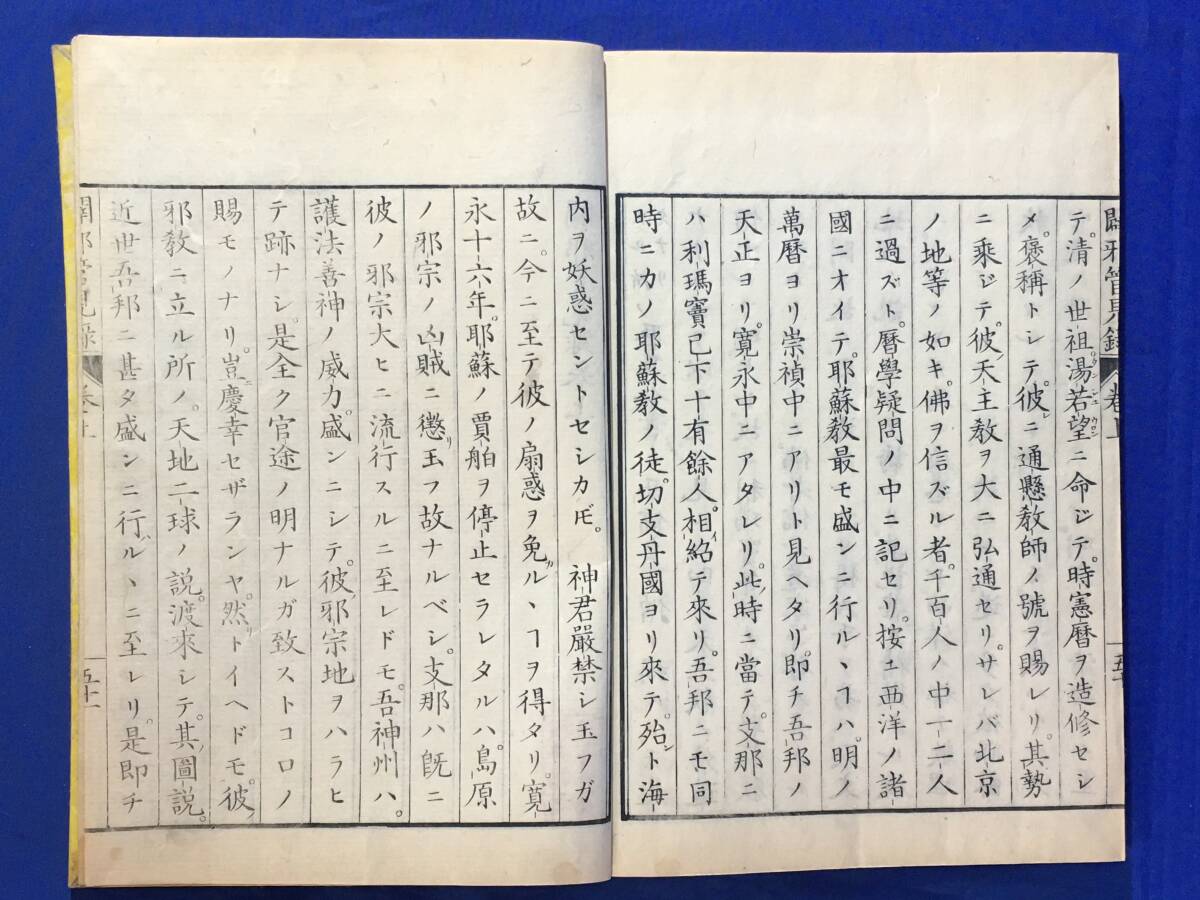 闢邪管見錄 卷上 五十
テ。清ノ世祖湯若望ニ命ジテ。時憲暦ヲ造修セシ
メ。褒稱トシテ。彼ニ通懸教師ノ號ヲ賜レリ。其勢
ニ乘ジテ。彼ノ天主教ヲ大ニ弘通セリ。サレバ北京
ノ地等ノ如キ。佛ヲ信ズル者。千百人ノ中一二人
ニ過ズト。暦學疑問ノ中ニ記セリ。按ニ西洋ノ諸
國ニオイテ。耶蘇教最モ盛ンニ行ルヽヿハ。明ノ
萬暦ヨリ崇禎中ニアリト見ヘタリ。即チ吾邦ノ
天正ヨリ。寛永中ニアタレリ。此時ニ當テ。支那ニ
ハ利瑪竇已下十有餘人。相紹テ來リ。吾邦ニモ同
時ニカノ耶蘇教ノ徒。切支丹國ヨリ來テ。殆ンド海
内ヲ妖惑セントセシカ𪜈。 神君嚴禁シ玉フガ
故ニ。今ニ至テ彼ノ扇惑ヲ免ルヽヿヲ得タリ。寛
永十六年。耶蘇ノ賈舶ヲ停止セラレタルハ。島原
ノ邪宗ノ凶賊ニ懲リ玉フ故ナルベシ。支那ハ既ニ
彼ノ邪宗大ヒニ流行スルニ至レドモ。吾神州ハ。
護法善神ノ威力。盛ンニシテ。彼ノ邪宗地ヲハラヒ
テ跡ナシ。是全ク官途ノ明ナルガ致ストコロノ
賜モノナリ。豈ニ慶幸セザランヤ。然リトイヘドモ。彼ノ
邪教ニ立ル所ノ。天地二球ノ説。渡來シテ。其ノ圖説。
近世吾邦ニ甚タ盛ンニ行ルヽニ至レリ。是即チ
闢邪管見錄 卷上 五十一